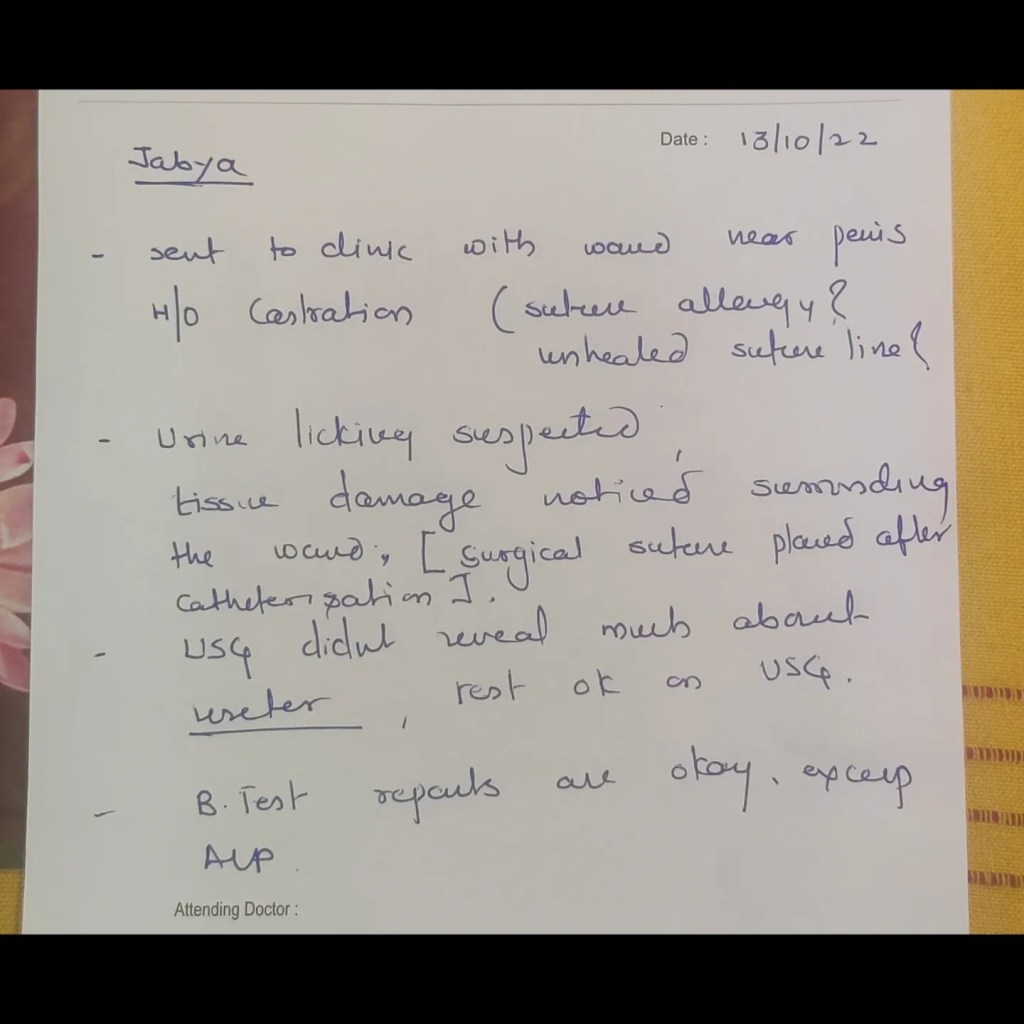 Date : 13/10/22
Jabya
- sent to clinic with wound near penis
H/O Castration (suture allergy?
unhealed suture line?
- Urine licking suspected,
tissue damage noticed surrounding
the wound, [surgical suture placed after
catheterization].
- USG didnt reveal much about
ureter, rest ok on USG.
- B. Test reports are okay, except
ALP.
Attending Doctor :